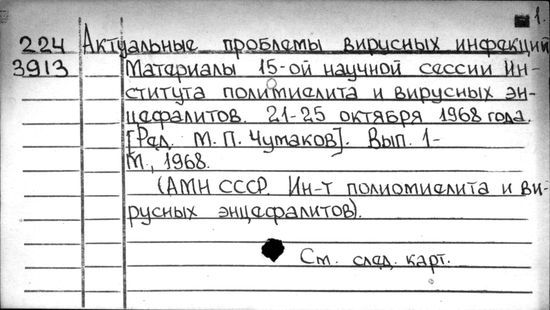 1.
224 Актуальные проблемы вирусных инфекций
3913 Материалы 15-ой научной сессии Ин-
ститута полимиелита и вирусных эн-
цефалитов. 21-25 октября 1968 года.
[Ред. М. П. Чумаков]. Вып. 1-
М., 1968.
(АМН СССР. Ин-т полиомиелита и ви-
русных энцефалитов).
См. след. карт.